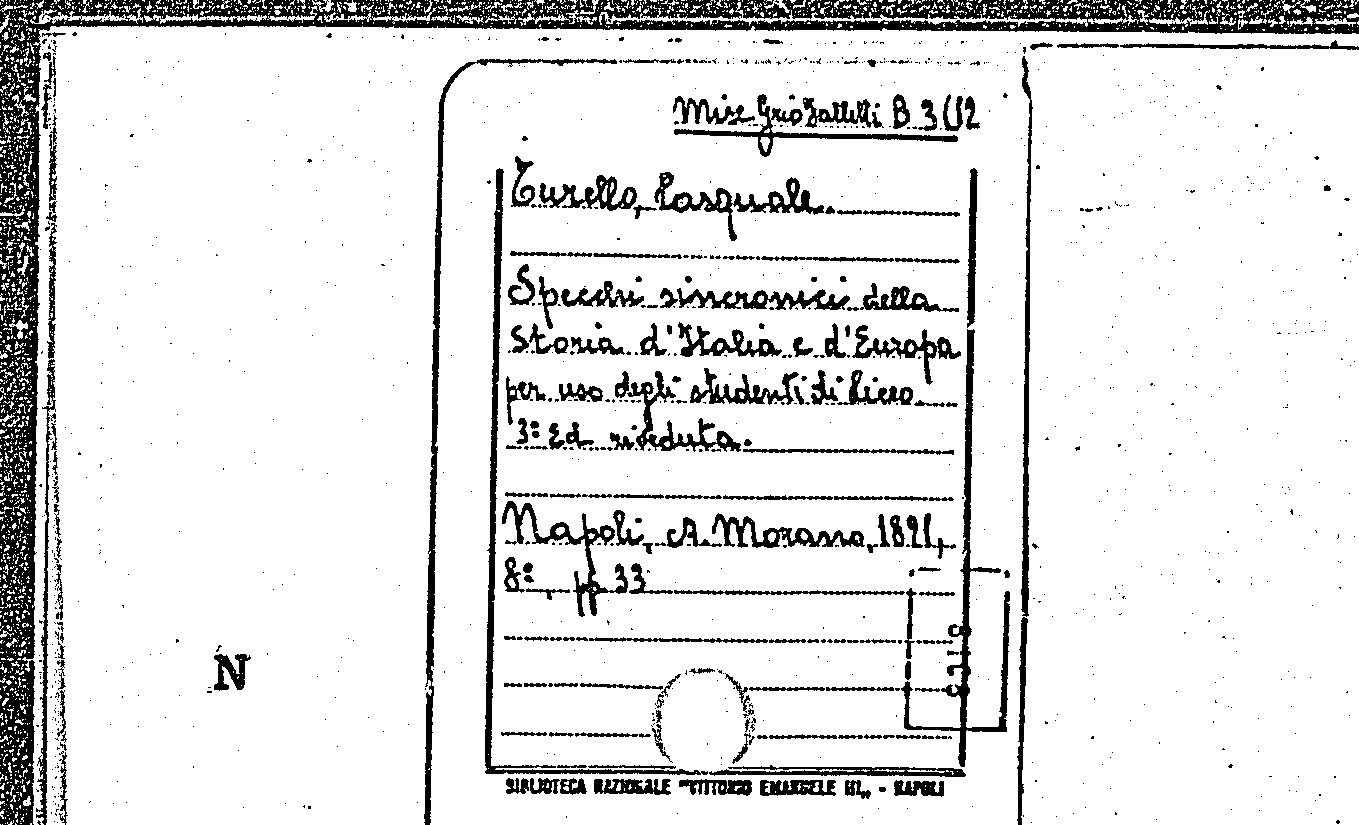 Misc Griozalletti B 3 (12
Turello, Pasquale.
Specchi sincronici della
Storia d'Italia e d'Europa
per uso degli studenti di Liceo
3ª Ed riveduta.
Napoli, A. Morano, 1891,
8º, pp 33
N
BIBLIOTECA NAZIONALE "VITTORIO EMANUELE III„ - NAPOLI